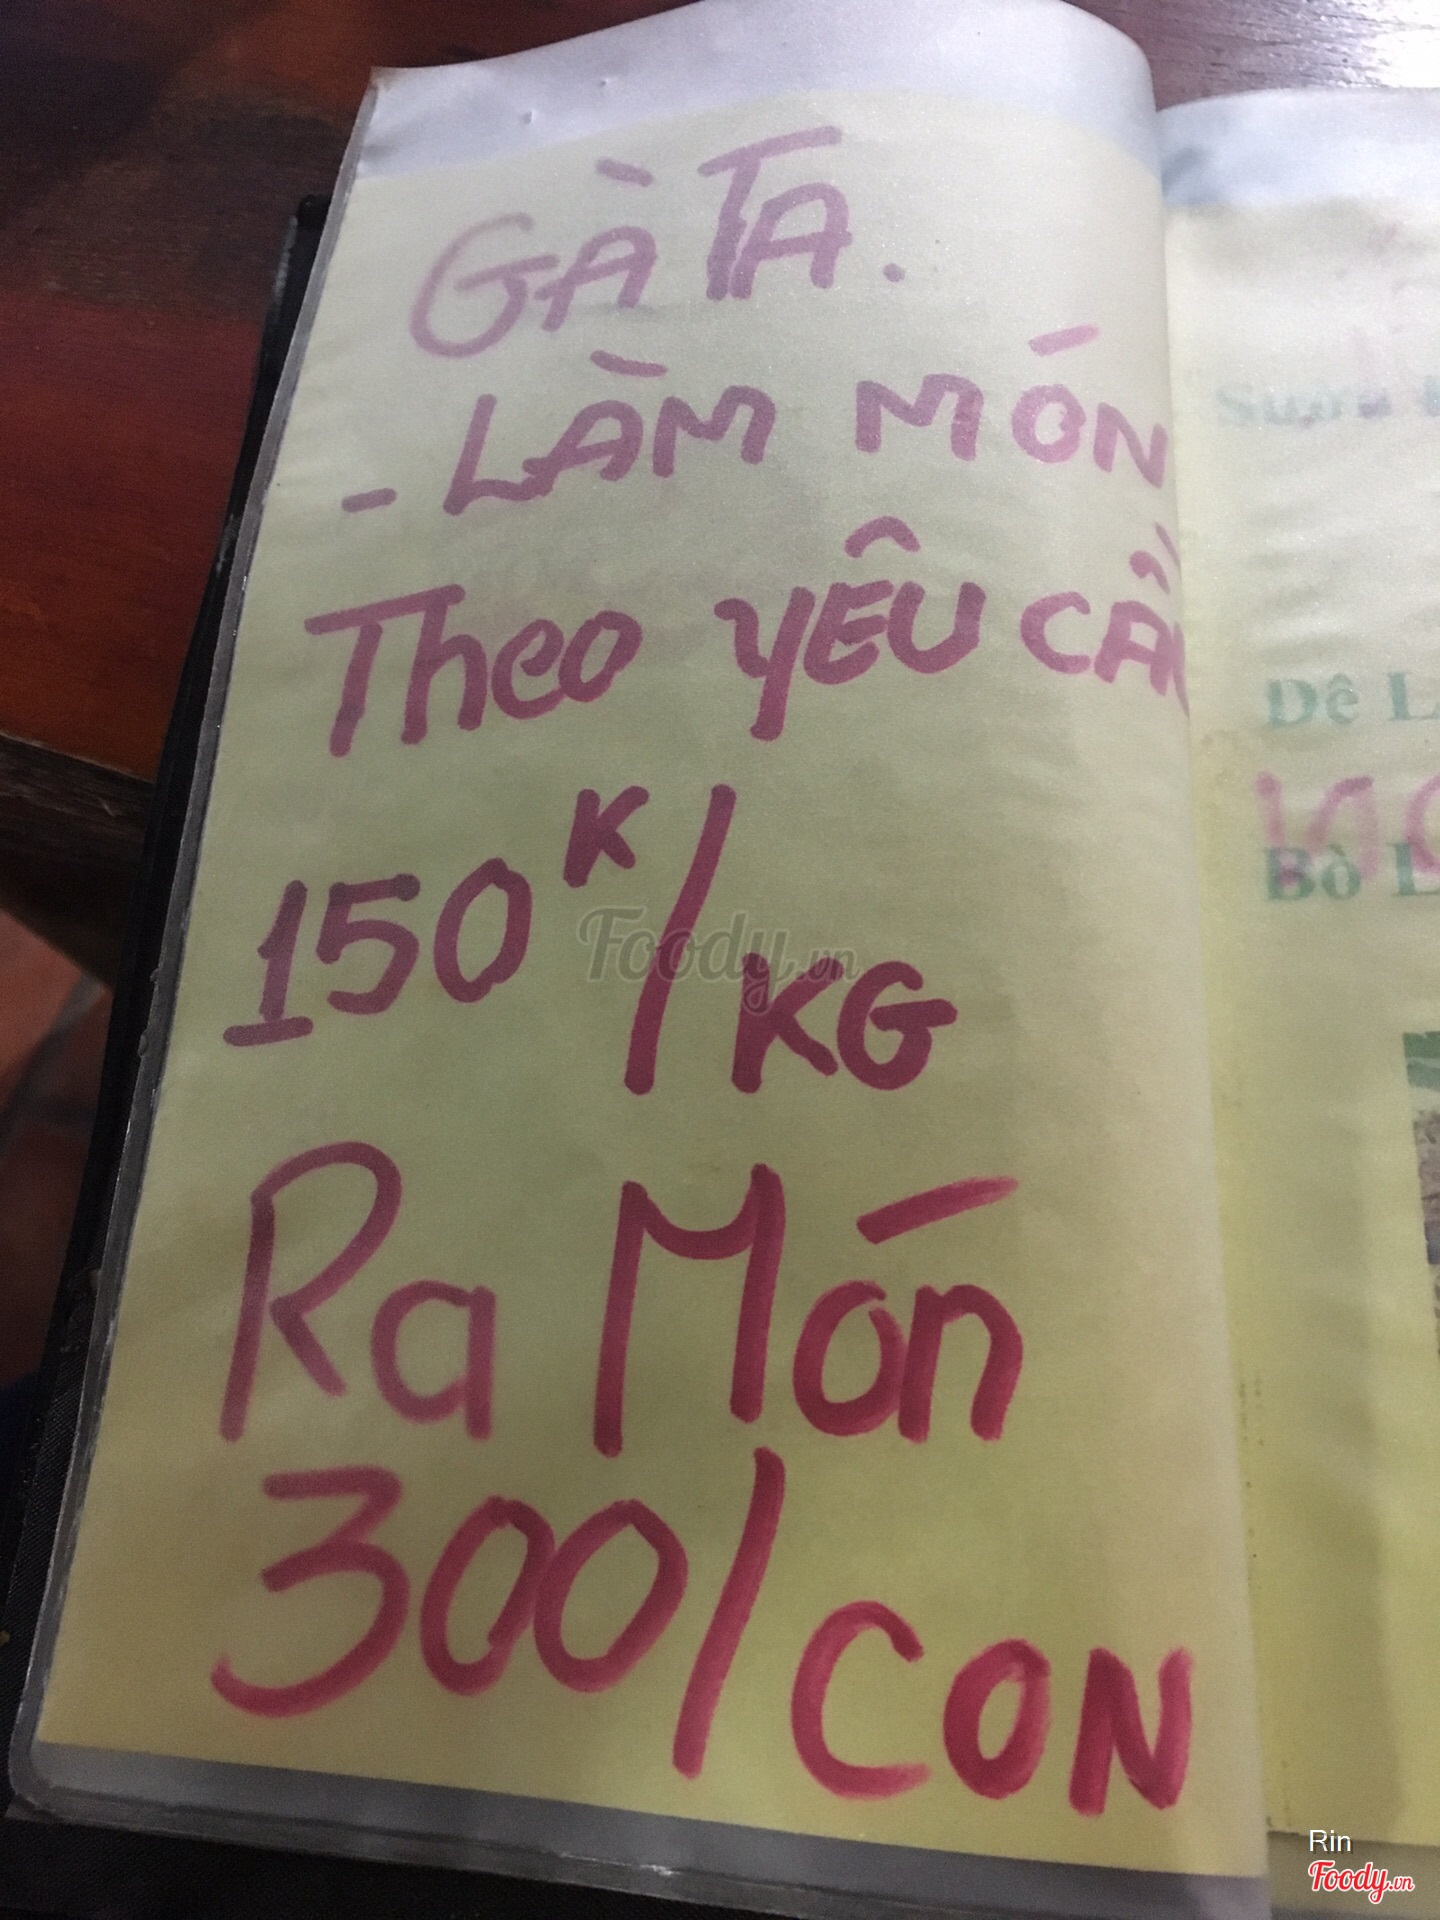 GÀ TA.
- LÀM MÓN
Theo YÊU CẦU
150K/KG
Ra Món
300/CON
Dê L
Bò L
Foody.vn
Rin
Foody.vn